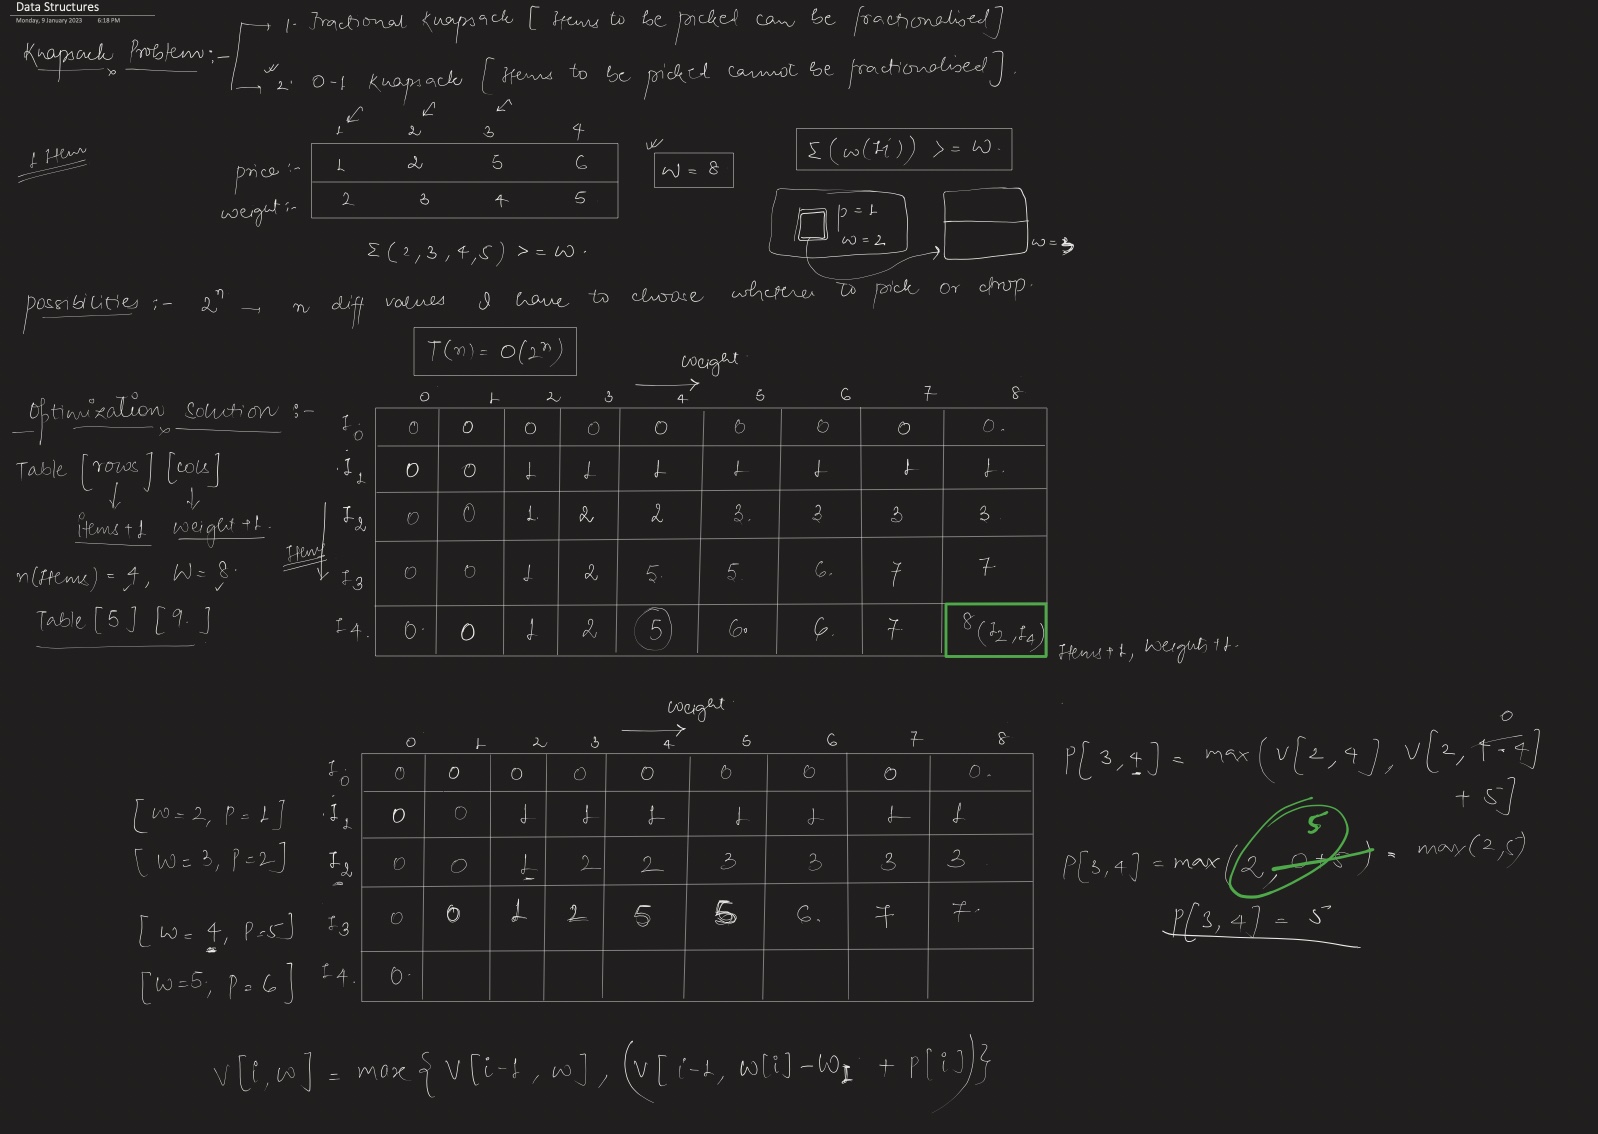 Data Structures
Monday, 9 January 2023 6:18 PM
Knapsack Problem :-
1. Fractional Knapsack [ Items to be picked can be fractionalised ]
2. 0-1 Knapsack [ Items to be picked cannot be fractionalised ].
1 2 3 4
1 Item
price :- 1 2 5 6
weight :- 2 3 4 5
W = 8
Σ ( w(Ii) ) >= W.
p = 1
w = 2
w = 3
Σ ( 2, 3, 4, 5 ) >= W.
possibilities :- 2^n → n diff values I have to choose whether to pick or drop.
T(n) = O(2^n)
weight
Optimization Solution :-
Table [rows] [cols]
items+1 weight+1.
n(Items) = 4, W = 8.
Table [5] [9.]
Items
0 1 2 3 4 5 6 7 8
I0 0 0 0 0 0 0 0 0 0.
I1 0 0 1 1 1 1 1 1 1.
I2 0 0 1 2 2 3. 3 3 3
I3 0 0 1 2 5. 5. 6. 7 7
I4. 0. 0 1 2 5 6. 6. 7 8 (I2, I4)
Items+1, Weight+1.
weight
0 1 2 3 4 5 6 7 8
I0 0 0 0 0 0 0 0 0 0.
[ w=2, P=1 ] I1 0 0 1 1 1 1 1 1 1
[ w=3, P=2 ] I2 0 0 1 2 2 3 3 3 3
[ w=4, P=5 ] I3 0 0 1 2 5 5 6. 7 7.
[ w=5, P=6 ] I4. 0.
0
P[3,4] = max ( V[2,4], V[2, 4-4]
+ 5 ]
5
P[3,4] = max ( 2, 0+5 ) = max(2,5)
P[3,4] = 5
V[i,w] = max { V[i-1, w], (V[i-1, w[i]-wI + P[i]) }